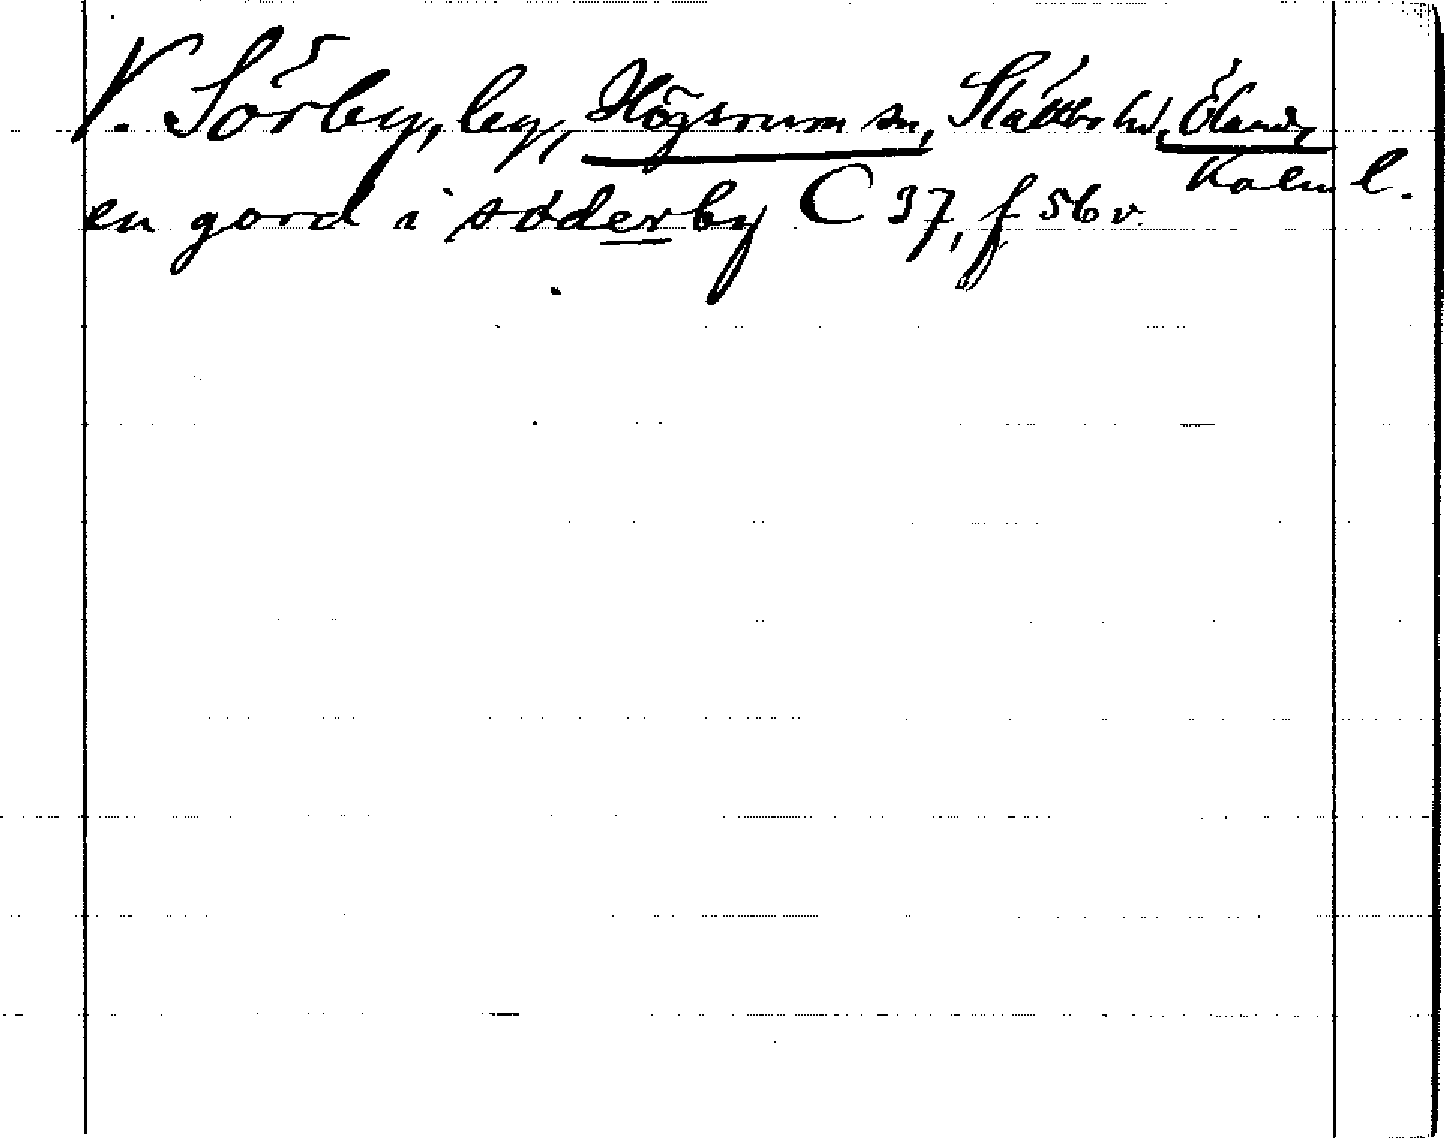 V. Sörby, by, Högsrum sn, Slättbo hd, Öland,
Kalm l.
en gord i söderby C 37, f 56 v.